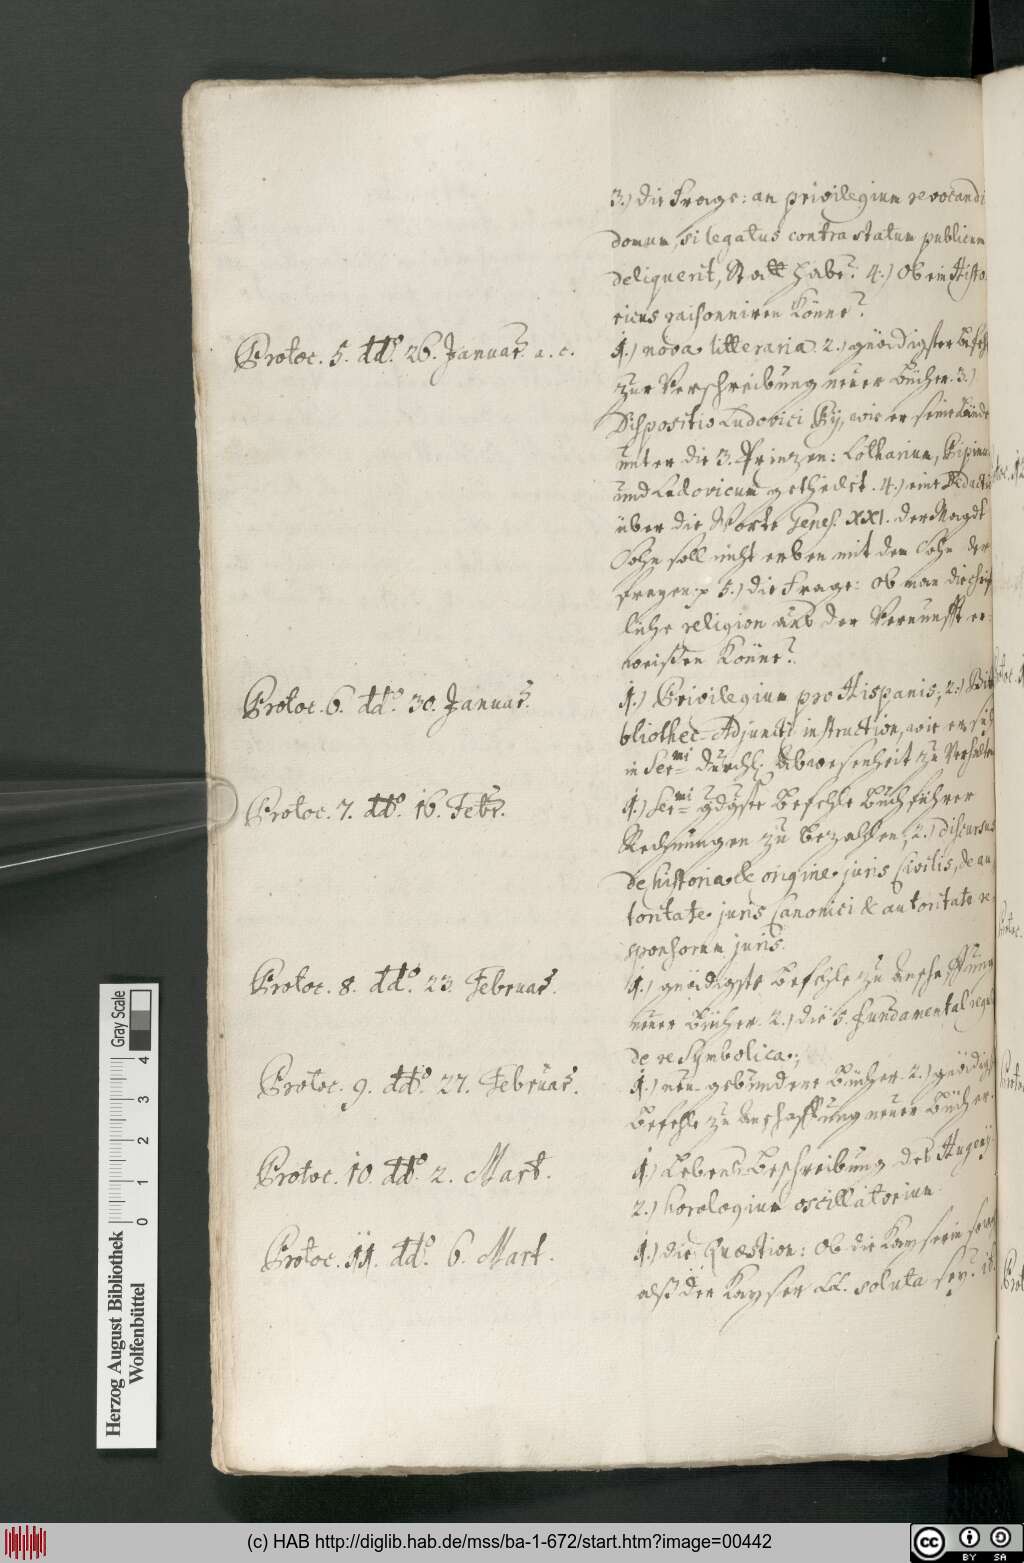 3.) die Frage: an privilegium revocandi
domum, si legatus contra statum publicum
deliquerit, Statt habe? 4.) Ob ein Histo-
ricus raisonniren Könne?
Protoc. 5. dd° 26. Januar. a. c.
1.) nova litteraria. 2.) gnädigster Befehl
zur Verschreibung neuer Bücher. 3.)
Dispositio Ludovici Pij, wie er seine Lände
unter die 3. Prinzen: Lotharium, Pipinum
und Ludovicum getheilet. 4.) eine
über die Worte Genes. XXI. der Magdt
Sohn soll nicht erben mit dem Sohn der
Freyen. 5.) die Frage: Ob man die Christ-
liche religion aus der Vernunfft er-
weisen Könne?
Protoc. 6. dd° 30. Januar.
1.) Privilegium pro Hispanis, 2.) Bi-
bliothec-Adjuncti instruction, wie er sich
in Sermi Durchl. Abwesenheit zu Verhalten
Protoc. 7. dd° 16. Febr.
1.) Sermi gdgste Befehle Buchführer
Rechnungen zu bezahlen, 2.) discursus
de historia & origine juris Civilis, de au-
toritate juris Canonici & autoritate re-
sponsorum juris.
Protoc. 8. dd° 23. Februar.
1.) gnädigste Befehle zu Anschaffung
neuer Bücher. 2.) die 5. Fundamental regul
de re Symbolica.
Protoc. 9. dd° 27. Februar.
1.) neu-gebundene Bücher. 2.) gnädigst
Befehle zu Anschaffung neuer Bücher.
Protoc. 10. dd° 2. Mart.
1.) Lebens-Beschreibung des Hugenij
2.) horologium oscillatorium
Protoc. 11. dd° 6. Mart.
1.) die Quæstion: Ob die Kayserin sowohl
alß der Kayser LL. soluta sey? it.
Gray Scale
0 1 2 3 4
Herzog August Bibliothek
Wolfenbüttel
(c) HAB http://diglib.hab.de/mss/ba-1-672/start.htm?image=00442
cc BY SA